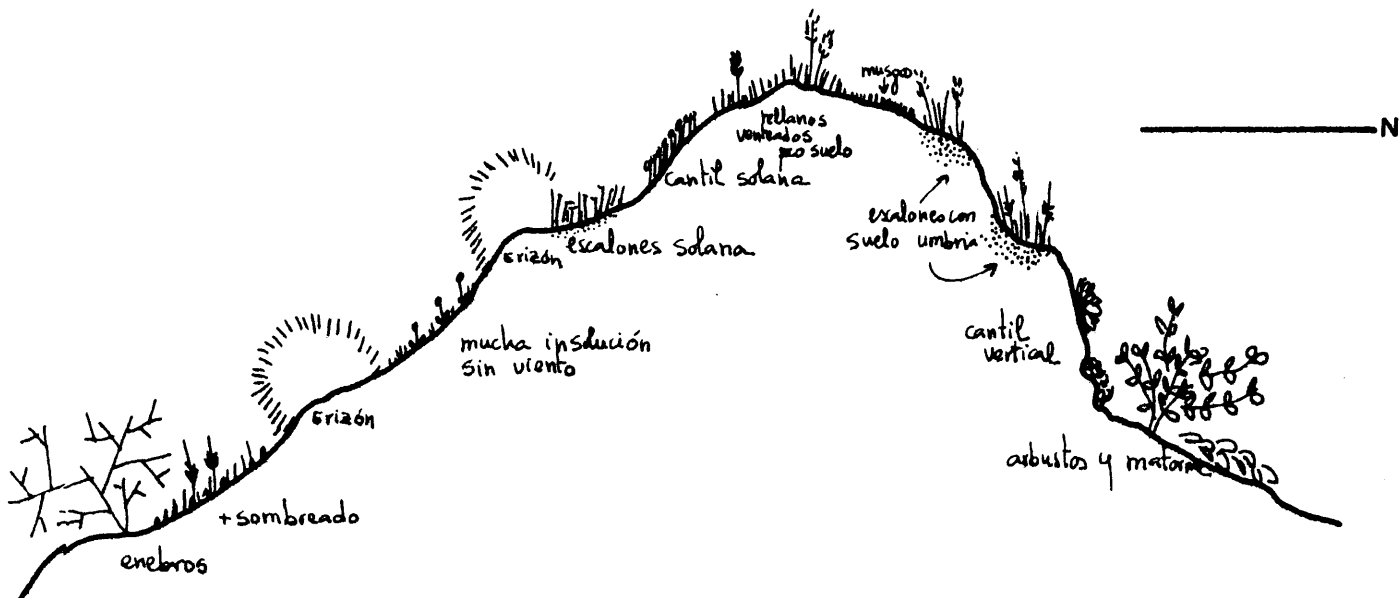 musgo
N
rellanos
venteados
poco suelo
cantil solana
escalones con
suelo umbria
escalones solana
Erizón
cantil
vertical
mucha insolución
sin viento
Erizón
arbustos y matorral
+ sombreado
enebros